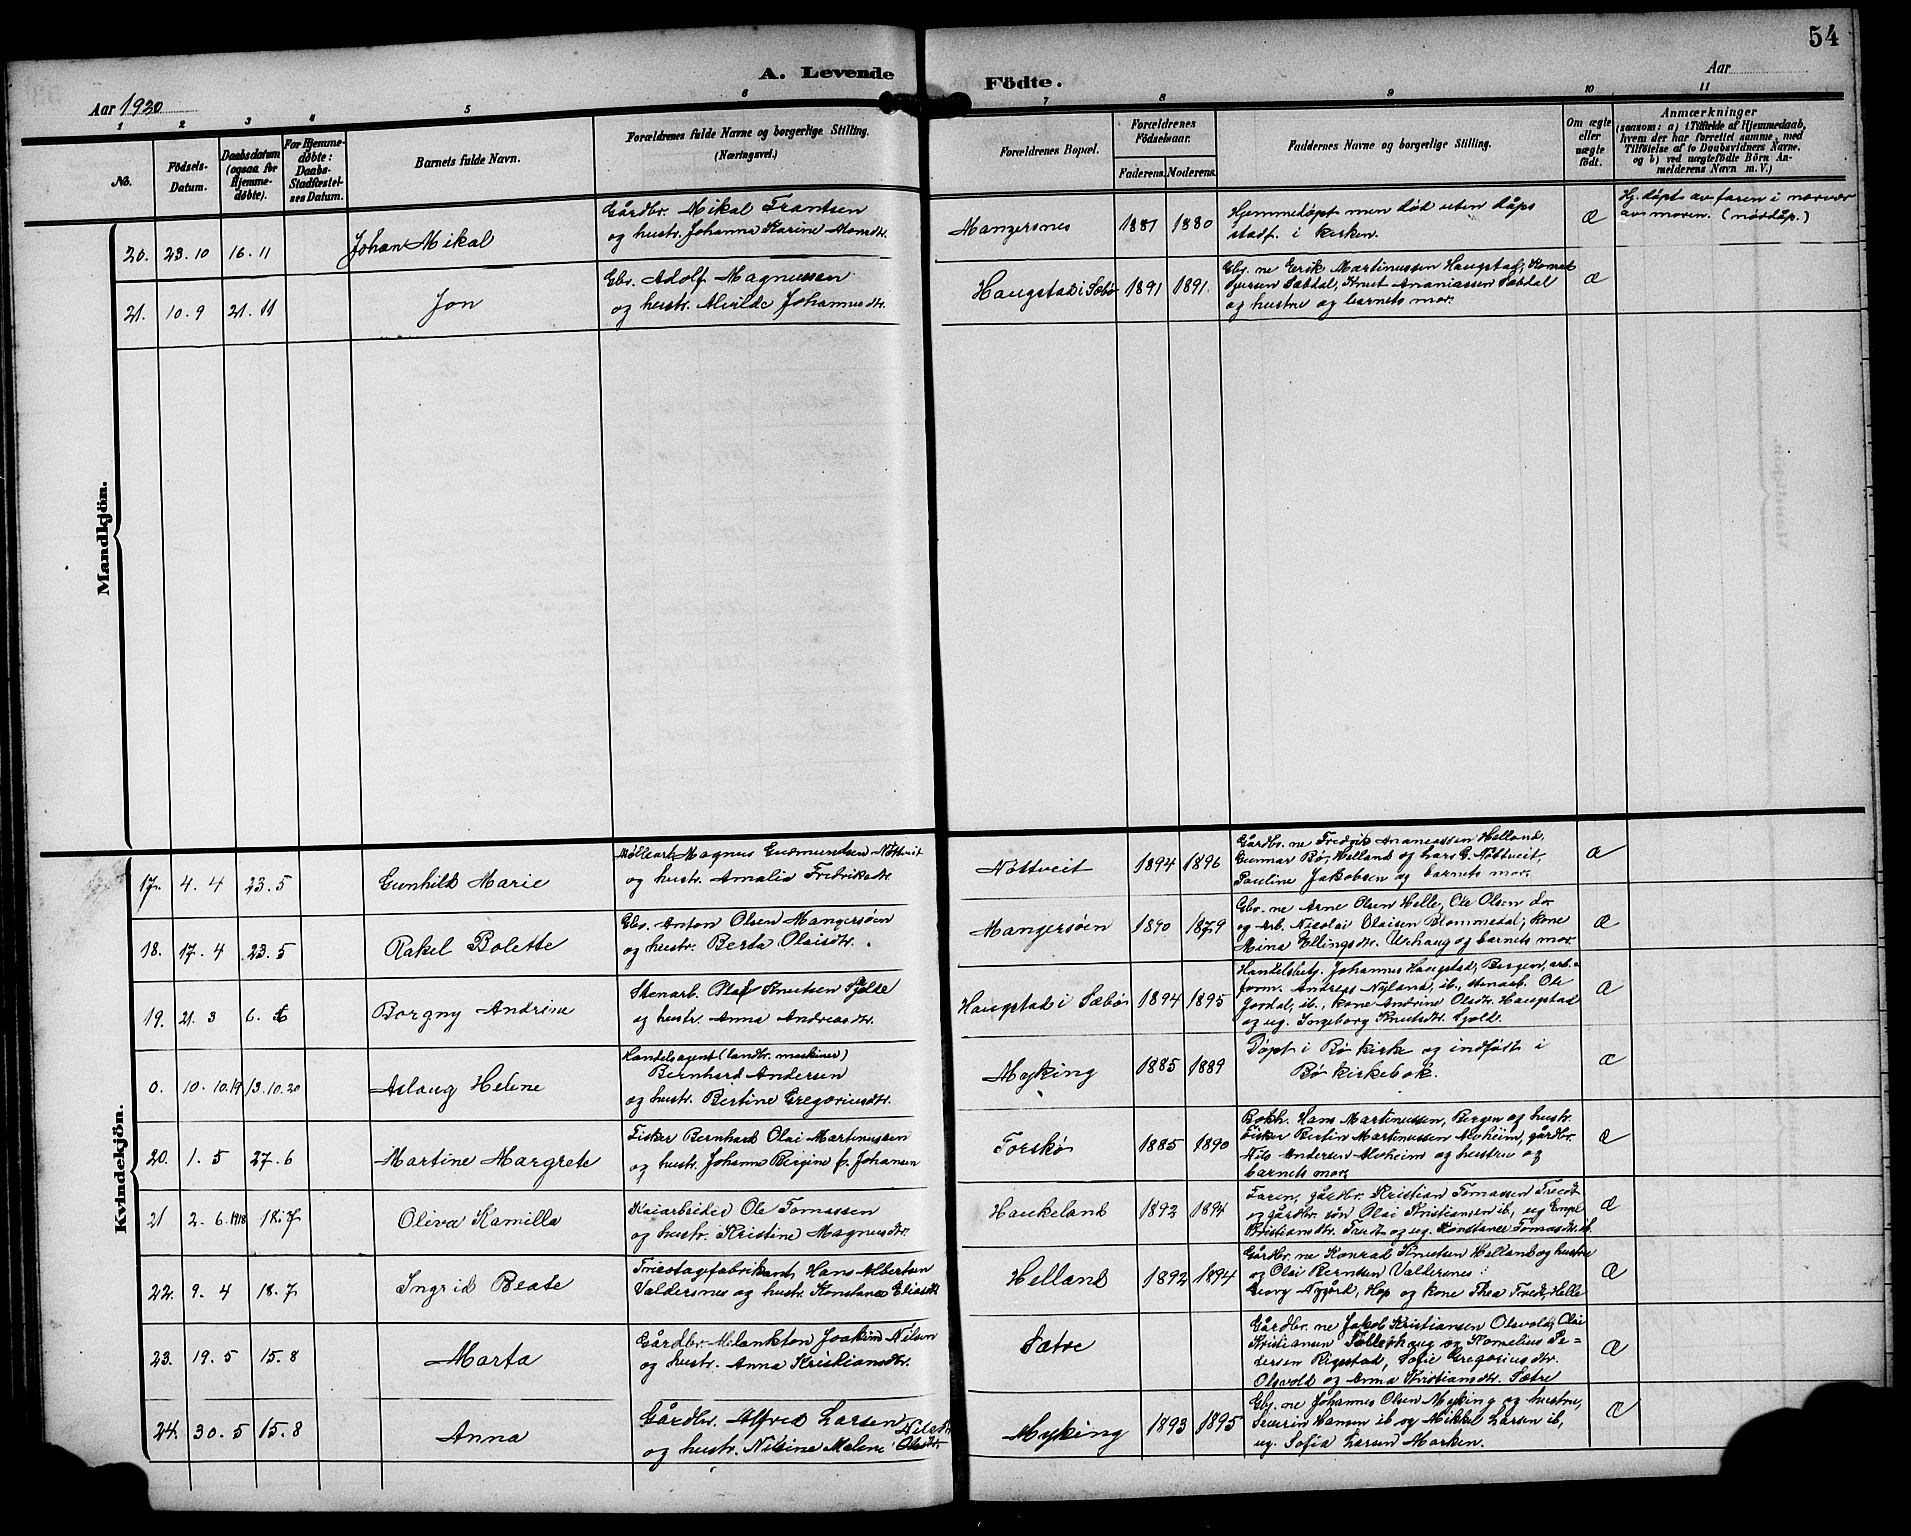 54
A. Levende Födte.
Aar 1920
Aar
1 2 3 4 5 6 7 8 9 10 11
No.
Födsels-Datum.
Daabsdatum (ogsaa for Hjemmedøbte).
For Hjemmedøbte: Daabs-Stadfæstelses Datum.
Barnets fulde Navn.
Forældrenes fulde Navne og borgerlige Stilling.
(Næringsvei.)
Forældrenes Bopæl.
Forældrenes Födselsaar.
Faderens. Moderens.
Faddernes Navne og borgerlige Stilling.
Om ægte eller uægte födt.
Anmærkninger
(saasom: a) i Tilfælde af Hjemmedaab, hvem der har forrettet samme, med Tilföielse af to Daabsvidners Navne, og b) ved uægtefödte Börn Anmelderens Navn m. V.)
Mandkjön.
20. 23.10 16.11 Johan Mikal
Gårdbr. Mikal Frantsen
og hustr. Johanna Karine Monsdtr.
Mangersnes 1881 1880
Hjemmedøpt men død uten dåps
stadf. i kirken.
Æ
Hj. døpt av faren i nærvær
av moren. (nøddåp.)
21. 10.9 21.11 Jon
Gbr. Adolf Magnussen
og hustr. Alvilde Johannesdtr.
Haugstad i Sæbø 1891 1891.
Gbr. ne Erik Martinussen Haugstad,
Sæbdal, Knut Ananiassen Sæbdal
og hustru og barnets mor.
Æ
Kvindekjön.
17. 4.4 23.5 Gunhild Marie
Møllearb. Magnus Gudmundsen Nøttveit
og hustr. Amalia Fredriksdtr.
Nøttveit 1894 1896
Gårdbr. ne Fredrik Ananiassen Helland,
Gunnar Bø, Helland og Lars G. Nøttveit,
Pauline Jakobsen og barnets mor.
Æ
18. 17.4 23.5 Rakel Bolette
Gbr. Anton Olsen Mangersøen
og hustr. Berta Olaisdtr.
Mangersøen 1890 1879
Gbr. ne Arne Olsen Helle, Ole Olsen do
og Arb. Nicolai Olaisen Blommedal; kone
Mina Ellingsdtr. Urhaug og barnets mor.
Æ
19. 21.3 6.6 Borgny Andrine
Stenarb. Olaf Knutsen
og hustr. Anna Andreasdtr.
Haugstad i Sæbø 1894 1895
Handelsbetj. Johannes Haugstad, Bergen, arb.
form. Andreas Nyland, ib., stenarb. Ole
Jordal, ib., kone Andrine Olsdtr. Haugstad
og ug. Ingeborg Knutsdtr.
Æ
0. 10.10.19 13.10.20 Aslaug Helene
Handelsagent (landbr. maskiner)
Bernhard Andersen
og hustr. Bertine Gregoriusdtr.
Myking 1885 1889
Døpt i Bø kirke og indført i
Bø kirkebok.
Æ
20. 1.5 27.6 Martine Margrete
Fisker Bernhard Olai Martinussen
og hustr. Johanna Bergine f. Johansen
Torskø 1885 1890
Bokh. Hans Martinussen, Bergen og hustr.
fisker Bertin Martinussen Alvheim, gårdbr.
Nils Andersen Alvheim og hustru og
barnets mor.
Æ
21 2.6.1918 18.7 Oliva Kamilla
Kaiarbeider Ole Tomassen
og hustr. Kristine Magnusdtr.
Haukeland 1892 1894
Faren, gårdbr. Kristian Tomassen
og gårdbr. søn Olai Kristiansen ib, ug
Kristiansdtr. og ug. Konstanse Tomasdtr. ib.
Æ
22. 9.4 18.7 Ingrid Beate
Tricotagfabrikant, Hans Albertsen
Valdersnes og hustr. Konstanse Eliasdtr
Helland 1892 1894
Gårdbr. ne Konrad Knutsen Helland og hustru
og Olai Berntsen Valdersnes
Georg Nygård, Hop og kone Thea Helle
Æ
23. 19.5 15.8 Marta
Gårdbr. Melankton Joakim Nilsen
og hustr. Anna Kristiansdtr.
Sætre
Gårdbr. ne Jakob Kristiansen Olsvold, Olai
Kristiansen og Kornelius Pe-
dersen Rigstad, Sofie Gregoriusdtr.
Olsvold og Anna Kristiansdtr. Sætre
Æ
24. 30.5 15.8 Anna
Gårdbr. Alfred Larsen
og hustr. Nilsine Malene Olsdtr
Myking 1893 1895
Gbr. ne Johannes Olsen Myking og hustru,
Severin Hansen ib og Mikkel Larsen ib,
ug. Sofia Larsen Marken.
Æ